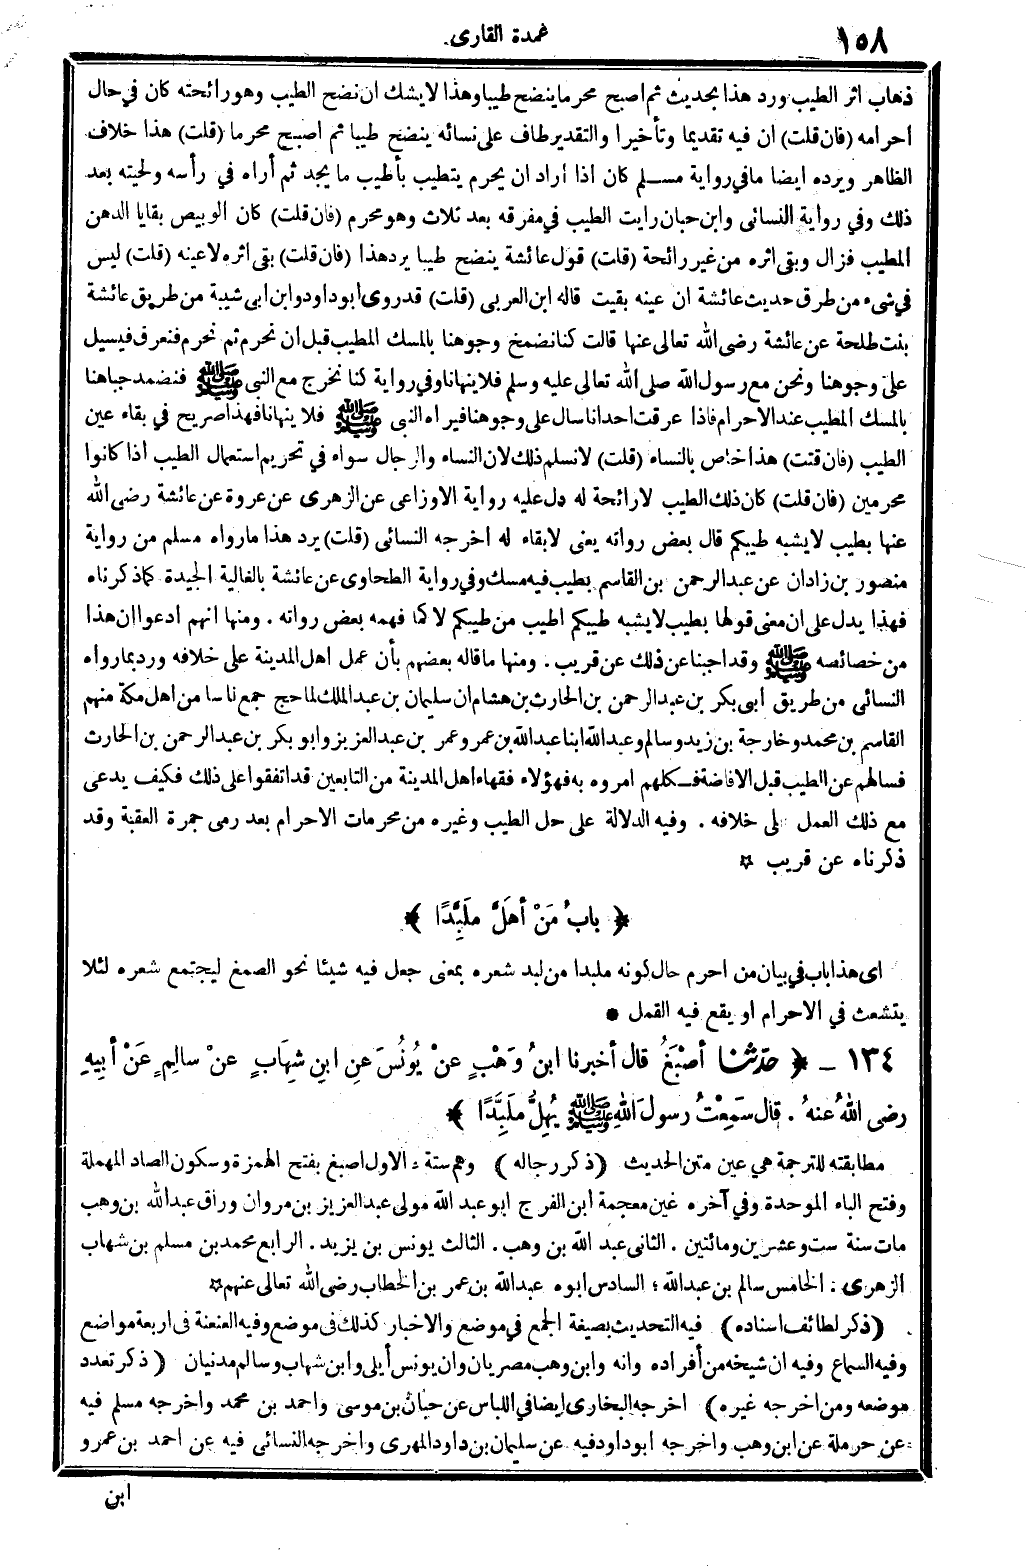 ١٥٨
عمدة القارى
ذهاب اثر الطيب ورد هذا بحديث ثم اصبح محرما ينضح طيبا وهذا لا يشك ان نضح الطيب وهو رائحته كان في حال
احرامه (فان قلت) ان فيه تقديما وتأخيرا والتقدير طاف على نسائه ينضح طيبا ثم اصبح محرما (قلت) هذا خلاف
الظاهر ويرده ايضا ما في رواية مسلم كان اذا أراد ان يحرم يتطيب بأطيب ما يجد ثم أراه في رأسه ولحيته بعد
ذلك وفي رواية النسائى وابن حبان رايت الطيب في مفرقه بعد ثلاث وهو محرم (فان قلت) كان الوبيص بقايا الدهن
المطيب فزال وبقى اثره من غير رائحة (قلت) قول عائشة ينضح طيبا يرد هذا (فان قلت) بقى اثره لا عينه (قلت) ليس
في شىء من طرق حديث عائشة ان عينه بقيت قاله ابن العربى (قلت) قد روى ابو داود وابن ابى شيبة من طريق عائشة
بنت طلحة عن عائشة رضى الله تعالى عنها قالت كنا نضمخ وجوهنا بالمسك المطيب قبل ان نحرم ثم نحرم فنعرق فيسيل
على وجوهنا ونحن مع رسول الله صلى الله تعالى عليه وسلم فلا ينهانا وفي رواية كنا نخرج مع النبى ﷺ فنضمد جباهنا
بالمسك المطيب عند الاحرام فاذا عرقت احدانا سال على وجوهنا فيراه النبى ﷺ فلا ينهانا فهذا صريح في بقاء عين
الطيب (فان قتت) هذا خاص بالنساء (قلت) لا نسلم ذلك لان النساء والرجال سواء في تحريم استعمال الطيب اذا كانوا
محرمين (فان قلت) كان ذلك الطيب لا رائحة له دل عليه رواية الاوزاعى عن الزهرى عن عروة عن عائشة رضى الله
عنها بطيب لا يشبه طيبكم قال بعض رواته يعنى لا بقاء له اخرجه النسائى (قلت) يرد هذا ما رواه مسلم من رواية
منصور بن زادان عن عبد الرحمن بن القاسم بطيب فيه مسك وفي رواية الطحاوى عن عائشة بالغالية الجيدة كما ذكرناه
فهذا يدل على ان معنى قولها بطيب لا يشبه طيبكم اطيب من طيبكم لا كما فهمه بعض رواته . ومنها انهم ادعوا ان هذا
من خصائصه ﷺ وقد اجبنا عن ذلك عن قريب . ومنها ما قاله بعضهم بأن عمل اهل المدينة على خلافه ورد بما رواه
النسائى من طريق ابى بكر بن عبد الرحمن بن الحارث بن هشام ان سليمان بن عبد الملك لما حج جمع ناسا من اهل مكة منهم
القاسم بن محمد وخارجة بن زيد وسالم وعبد الله ابنا عبد الله بن عمر وعمر بن عبد العزيز وابو بكر بن عبد الرحمن بن الحارث
فسالهم عن الطيب قبل الافاضة فكلهم امروه به فهؤلاء فقهاء اهل المدينة من التابعين قد اتفقوا على ذلك فكيف يدعى
مع ذلك العمل لى خلافه . وفيه الدلالة على حل الطيب وغيره من محرمات الاحرام بعد رمى جمرة العقبة وقد
ذكرناه عن قريب ☆
﴿ بابُ مَنْ أهَلَّ ملَبِّدًا ﴾
اى هذا باب في بيان من احرم حال كونه ملبدا من لبد شعره بمعنى جعل فيه شيئا نحو الصمغ ليجتمع شعره لئلا
يتشعث في الاحرام او يقع فيه القمل ●
١٣٤ ـ ﴿ حدّثنا أصْبَغُ قال أخبرنا ابنُ وَهْبٍ عنْ يُونُسَ عنِ ابنِ شِهَابٍ عنْ سالِمٍ عَنْ أبِيهِ
رضى اللهُ عنهُ . قال سَمِعْتُ رسولَ اللهِ ﷺ يُهِلُّ ملَبِّدًا ﴾
مطابقته للترجمة هي عين متن الحديث (ذكر رجاله) وهم ستة : الاول اصبغ بفتح الهمزة وسكون الصاد المهملة
وفتح الباء الموحدة وفي آخره غين معجمة ابن الفرج ابو عبد الله مولى عبد العزيز بن مروان وراق عبد الله بن وهب
مات سنة ست وعشرين ومائتين . الثانى عبد الله بن وهب . الثالث يونس بن يزيد . الرابع محمد بن مسلم بن شهاب
الزهرى : الخامس سالم بن عبد الله ؛ السادس ابوه عبد الله بن عمر بن الخطاب رضى الله تعالى عنهم ☆
(ذكر لطائف اسناده) فيه التحديث بصيغة الجمع في موضع والاخبار كذلك فى موضع وفيه العنعنة فى اربعة مواضع
وفيه السماع وفيه ان شيخه من أفراده وانه وابن وهب مصريان وان يونس أيلى وابن شهاب وسالم مدنيان (ذكر تعدد
موضعه ومن اخرجه غيره) اخرجه البخارى ايضا في اللباس عن حبان بن موسى واحمد بن محمد واخرجه مسلم فيه
عن حرملة عن ابن وهب واخرجه ابو داود فيه عن سليمان بن داود المهرى واخرجه النسائى فيه عن احمد بن عمرو
ابن